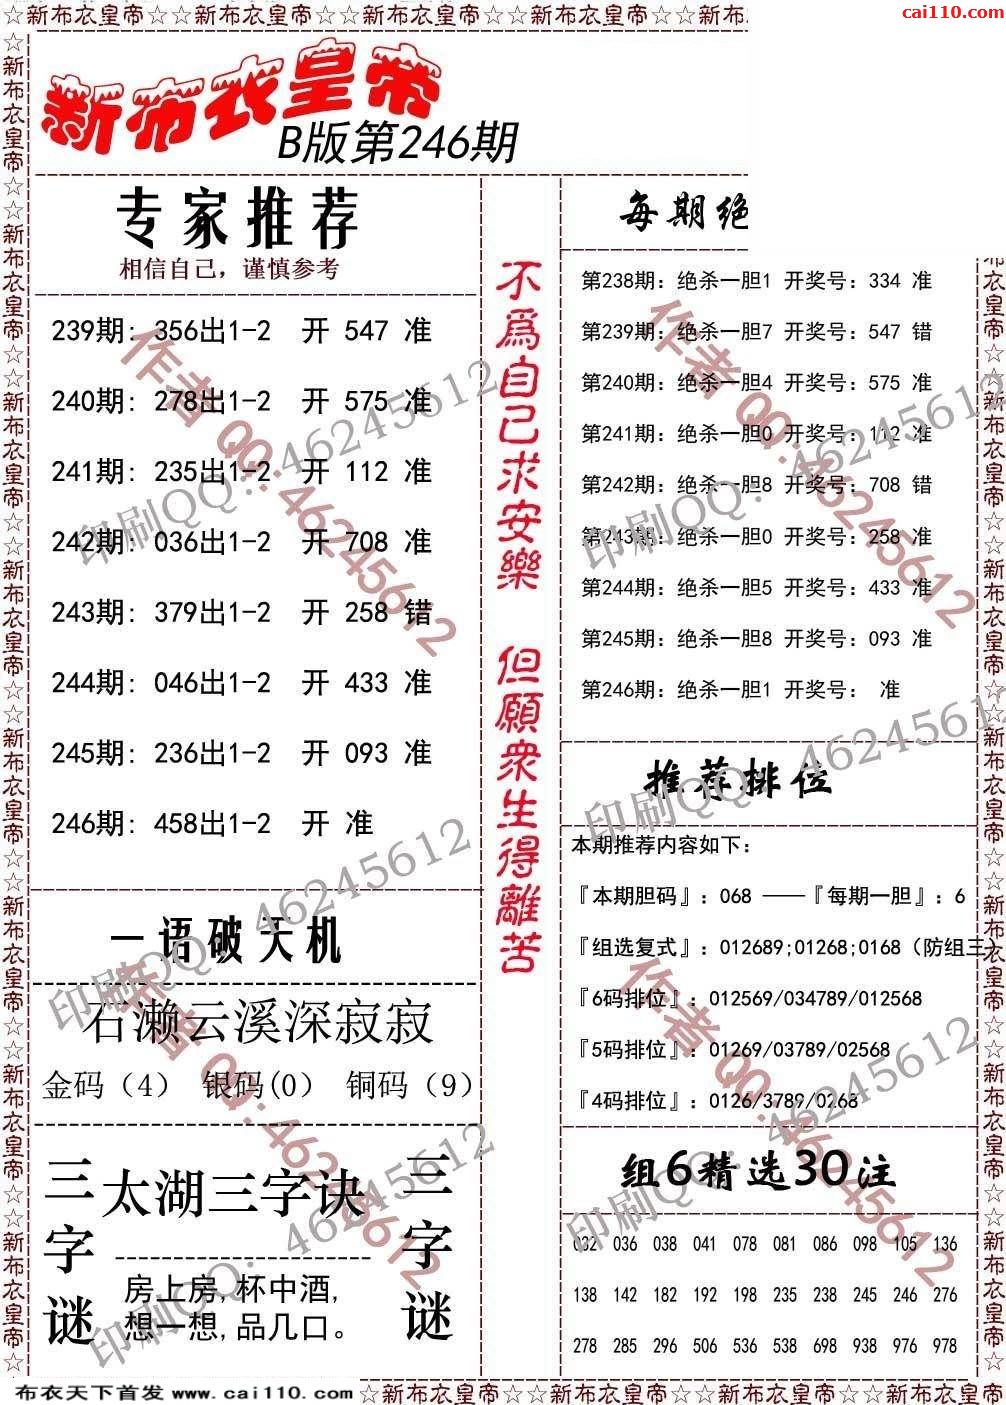 ☆新布衣皇帝☆☆新布衣皇帝☆☆新布衣皇帝☆☆新布衣皇帝☆☆新布
cai110.com
新布衣皇帝
B版第246期
专家推荐
相信自己，谨慎参考
239期: 356出1-2 开 547 准
240期: 278出1-2 开 575 准
241期: 235出1-2 开 112 准
242期: 036出1-2 开 708 准
243期: 379出1-2 开 258 错
244期: 046出1-2 开 433 准
245期: 236出1-2 开 093 准
246期: 458出1-2 开 准
一语破天机
石濑云溪深寂寂
金码（4） 银码(0） 铜码（9）
三字谜
太湖三字诀
房上房,杯中酒,
想一想,品几口。
三字谜
不爲自己求安樂 但願衆生得離苦
每期绝
第238期: 绝杀一胆1 开奖号: 334 准
第239期: 绝杀一胆7 开奖号: 547 错
第240期: 绝杀一胆4 开奖号: 575 准
第241期: 绝杀一胆0 开奖号: 112 准
第242期: 绝杀一胆8 开奖号: 708 错
第243期: 绝杀一胆0 开奖号: 258 准
第244期: 绝杀一胆5 开奖号: 433 准
第245期: 绝杀一胆8 开奖号: 093 准
第246期: 绝杀一胆1 开奖号: 准
推荐排位
本期推荐内容如下:
『本期胆码』: 068 ——『每期一胆』: 6
『组选复式』: 012689;01268;0168（防组三）
『6码排位』: 012569/034789/012568
『5码排位』: 01269/03789/02568
『4码排位』: 0126/3789/0268
组6精选30注
032 036 038 041 078 081 086 098 105 136
138 142 182 192 198 235 238 245 246 276
278 285 296 506 536 538 698 938 976 978
作者 QQ:46245612
印刷QQ: 46245612
作者 QQ:46245612
印刷QQ: 46245612
印刷QQ: 46245612
印刷QQ: 46245612
作者 QQ:46245612
作者 QQ:46245612
印刷QQ: 46245612
印刷QQ: 46245612
布衣天下首发 www.cai110.com
☆新布衣皇帝☆☆新布衣皇帝☆☆新布衣皇帝☆☆新布衣皇帝☆